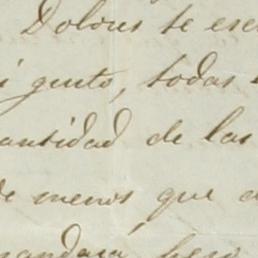 Dolores te esc
i gusto, todas
antidad de las
de menos que
mandará, pero